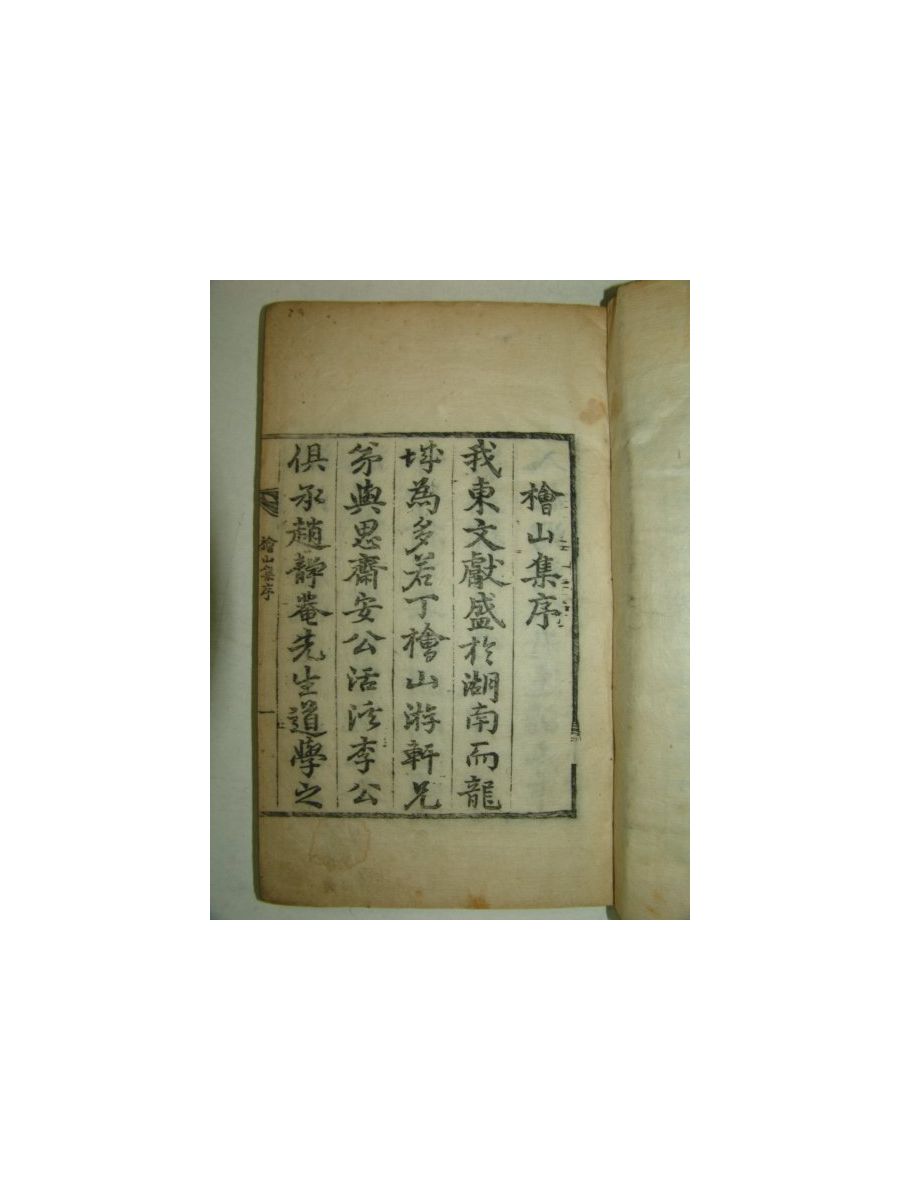 檜山集序
我東文獻盛於湖南而龍
城為多若丁檜山游軒兄
弟與思齋安公活溪李公
俱承趙靜菴先生道學之
檜山集序
一